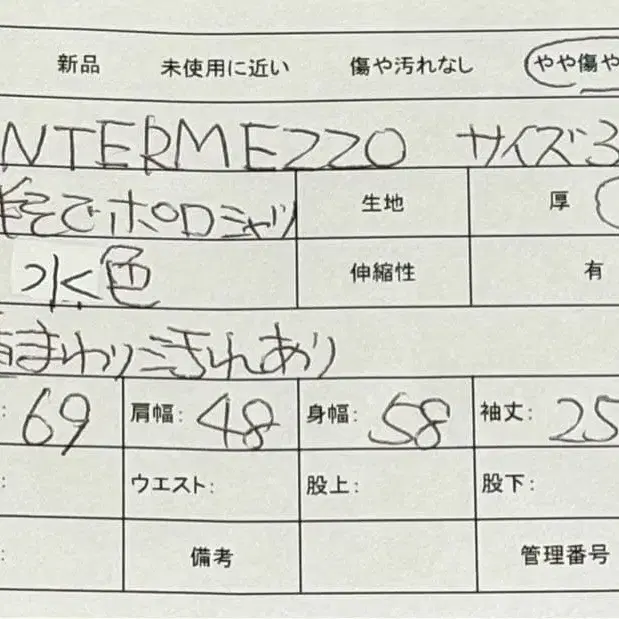 新品 未使用に近い 傷や汚れなし やや傷や
INTERMEZZO サイズ3
半そでポロシャツ 生地 厚
水色 伸縮性 有
首まわりに汚れあり
: 69 肩幅: 48 身幅: 58 袖丈: 25
: ウエスト: 股上: 股下:
: 備考 管理番号